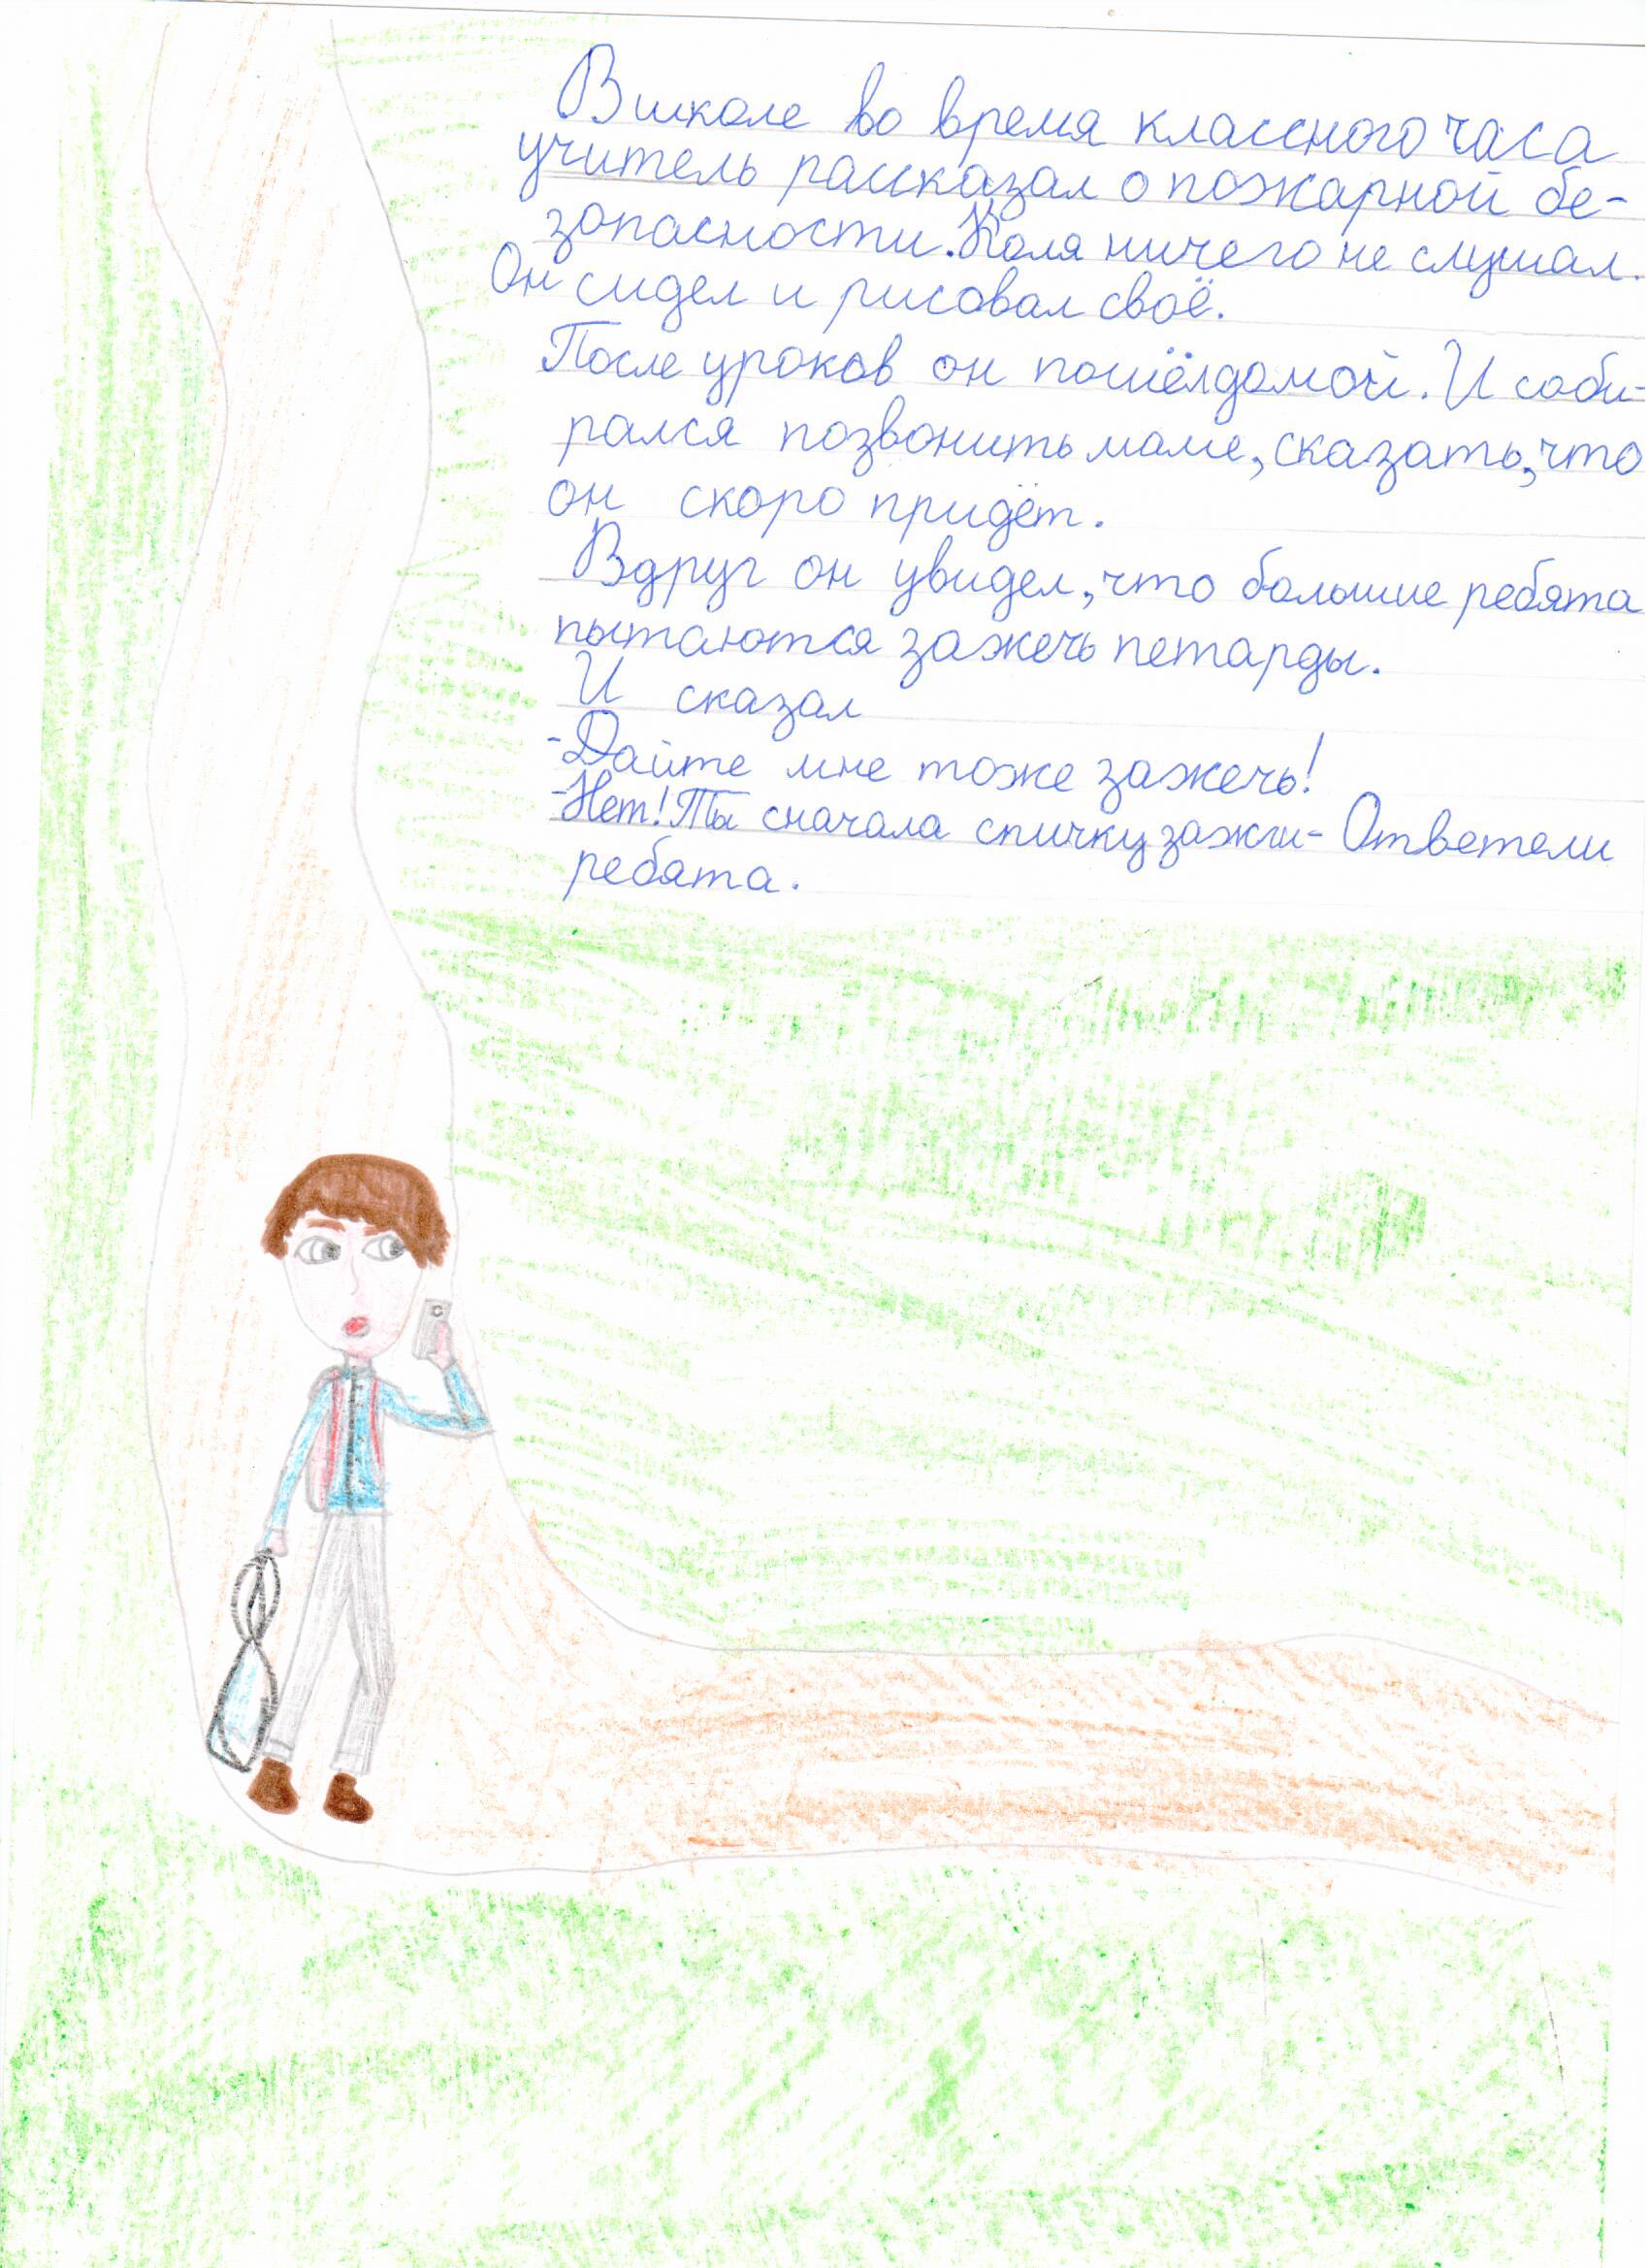 В школе во время классного часа
учитель рассказал о пожарной бе-
зопасности. Коля ничего не слушал.
Он сидел и рисовал своё.
После уроков он пошёл домой. И соби-
рался позвонить маме, сказать, что
он скоро придёт.
Вдруг он увидел, что большие ребята
пытаются зажечь петарды.
И сказал
-Дайте мне тоже зажечь!
-Нет! Ты сначала спичку зажги- Ответели
ребята.